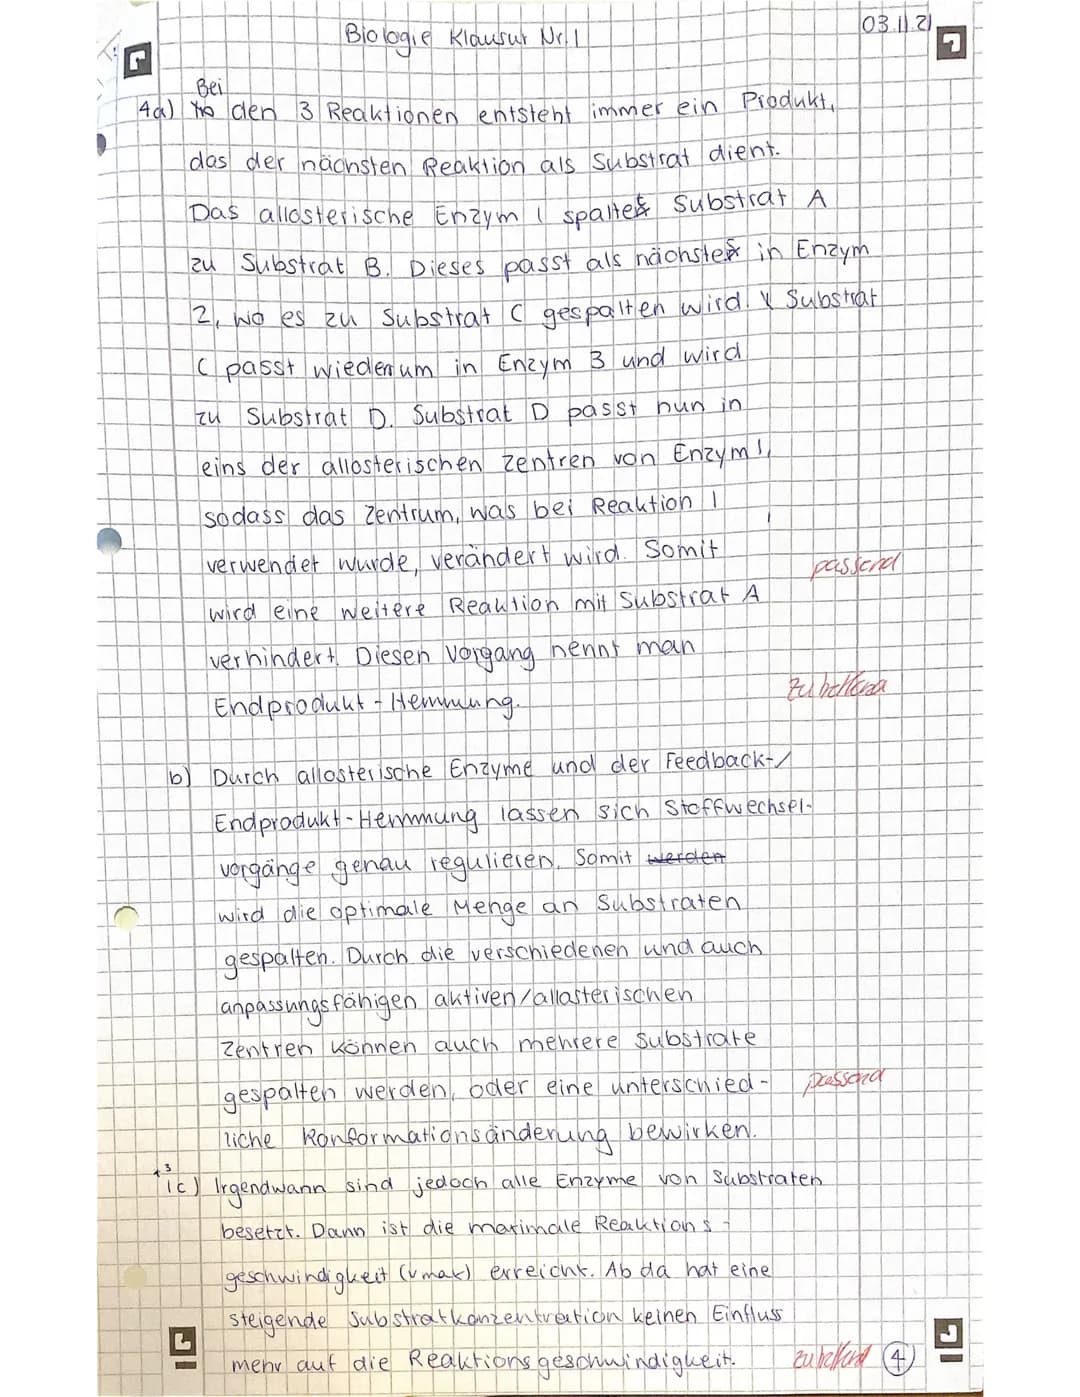 Biologie Klausur Nr. 1
03.11.21
Bei
4a) den 3 Reaktionen entsteht immer ein Produkt,
das der nächsten Reaktion als Substrat dient.
Das allosterische Enzym 1 spaltet Substrat A
zu Substrat B. Dieses passt als nächstes in Enzym
2, wo es zu Substrat C gespalten wird. Substrat
C passt wiederrum in Enzym 3 und wird
zu Substrat D. Substrat D passt nun in
eins der allosterischen Zentren von Enzym 1,
sodass das Zentrum, was bei Reaktion 1
verwendet wurde, verändert wird. Somit
passend
wird eine weitere Reaktion mit Substrat A
verhindert. Diesen Vorgang nennt man
zutreffend
Endprodukt-Hemmung.
b) Durch allosterische Enzyme und der Feedback-/
Endprodukt-Hemmung lassen sich Stoffwechsel-
vorgänge genau regulieren. Somit werden
wird die optimale Menge an Substraten
gespalten. Durch die verschiedenen und auch
anpassungsfähigen aktiven/allasterischen
Zentren können auch mehrere Substrate
gespalten werden, oder eine unterschied-
passend
liche Konformationsänderung bewirken.
*3
1c) Irgendwann sind jedoch alle Enzyme von Substraten
besetzt. Dann ist die maximale Reaktions-
geschwindigkeit (vmax) erreicht. Ab da hat eine
steigende Substratkonzentration keinen Einfluss
mehr auf die Reaktionsgeschwindigkeit.
zutreffend 4